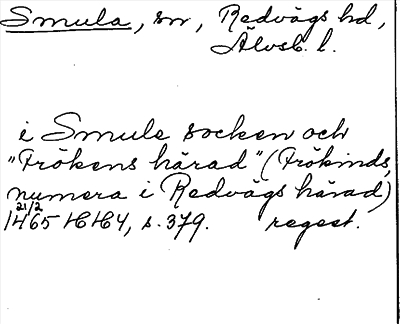 Smula, sn, Redvägs hd,
Älvsb. l.
i Smule socken och
"Frökens härad" (Frökinds,
numera i Redvägs härad)
21/2
1465 HH4, s. 379. regest.